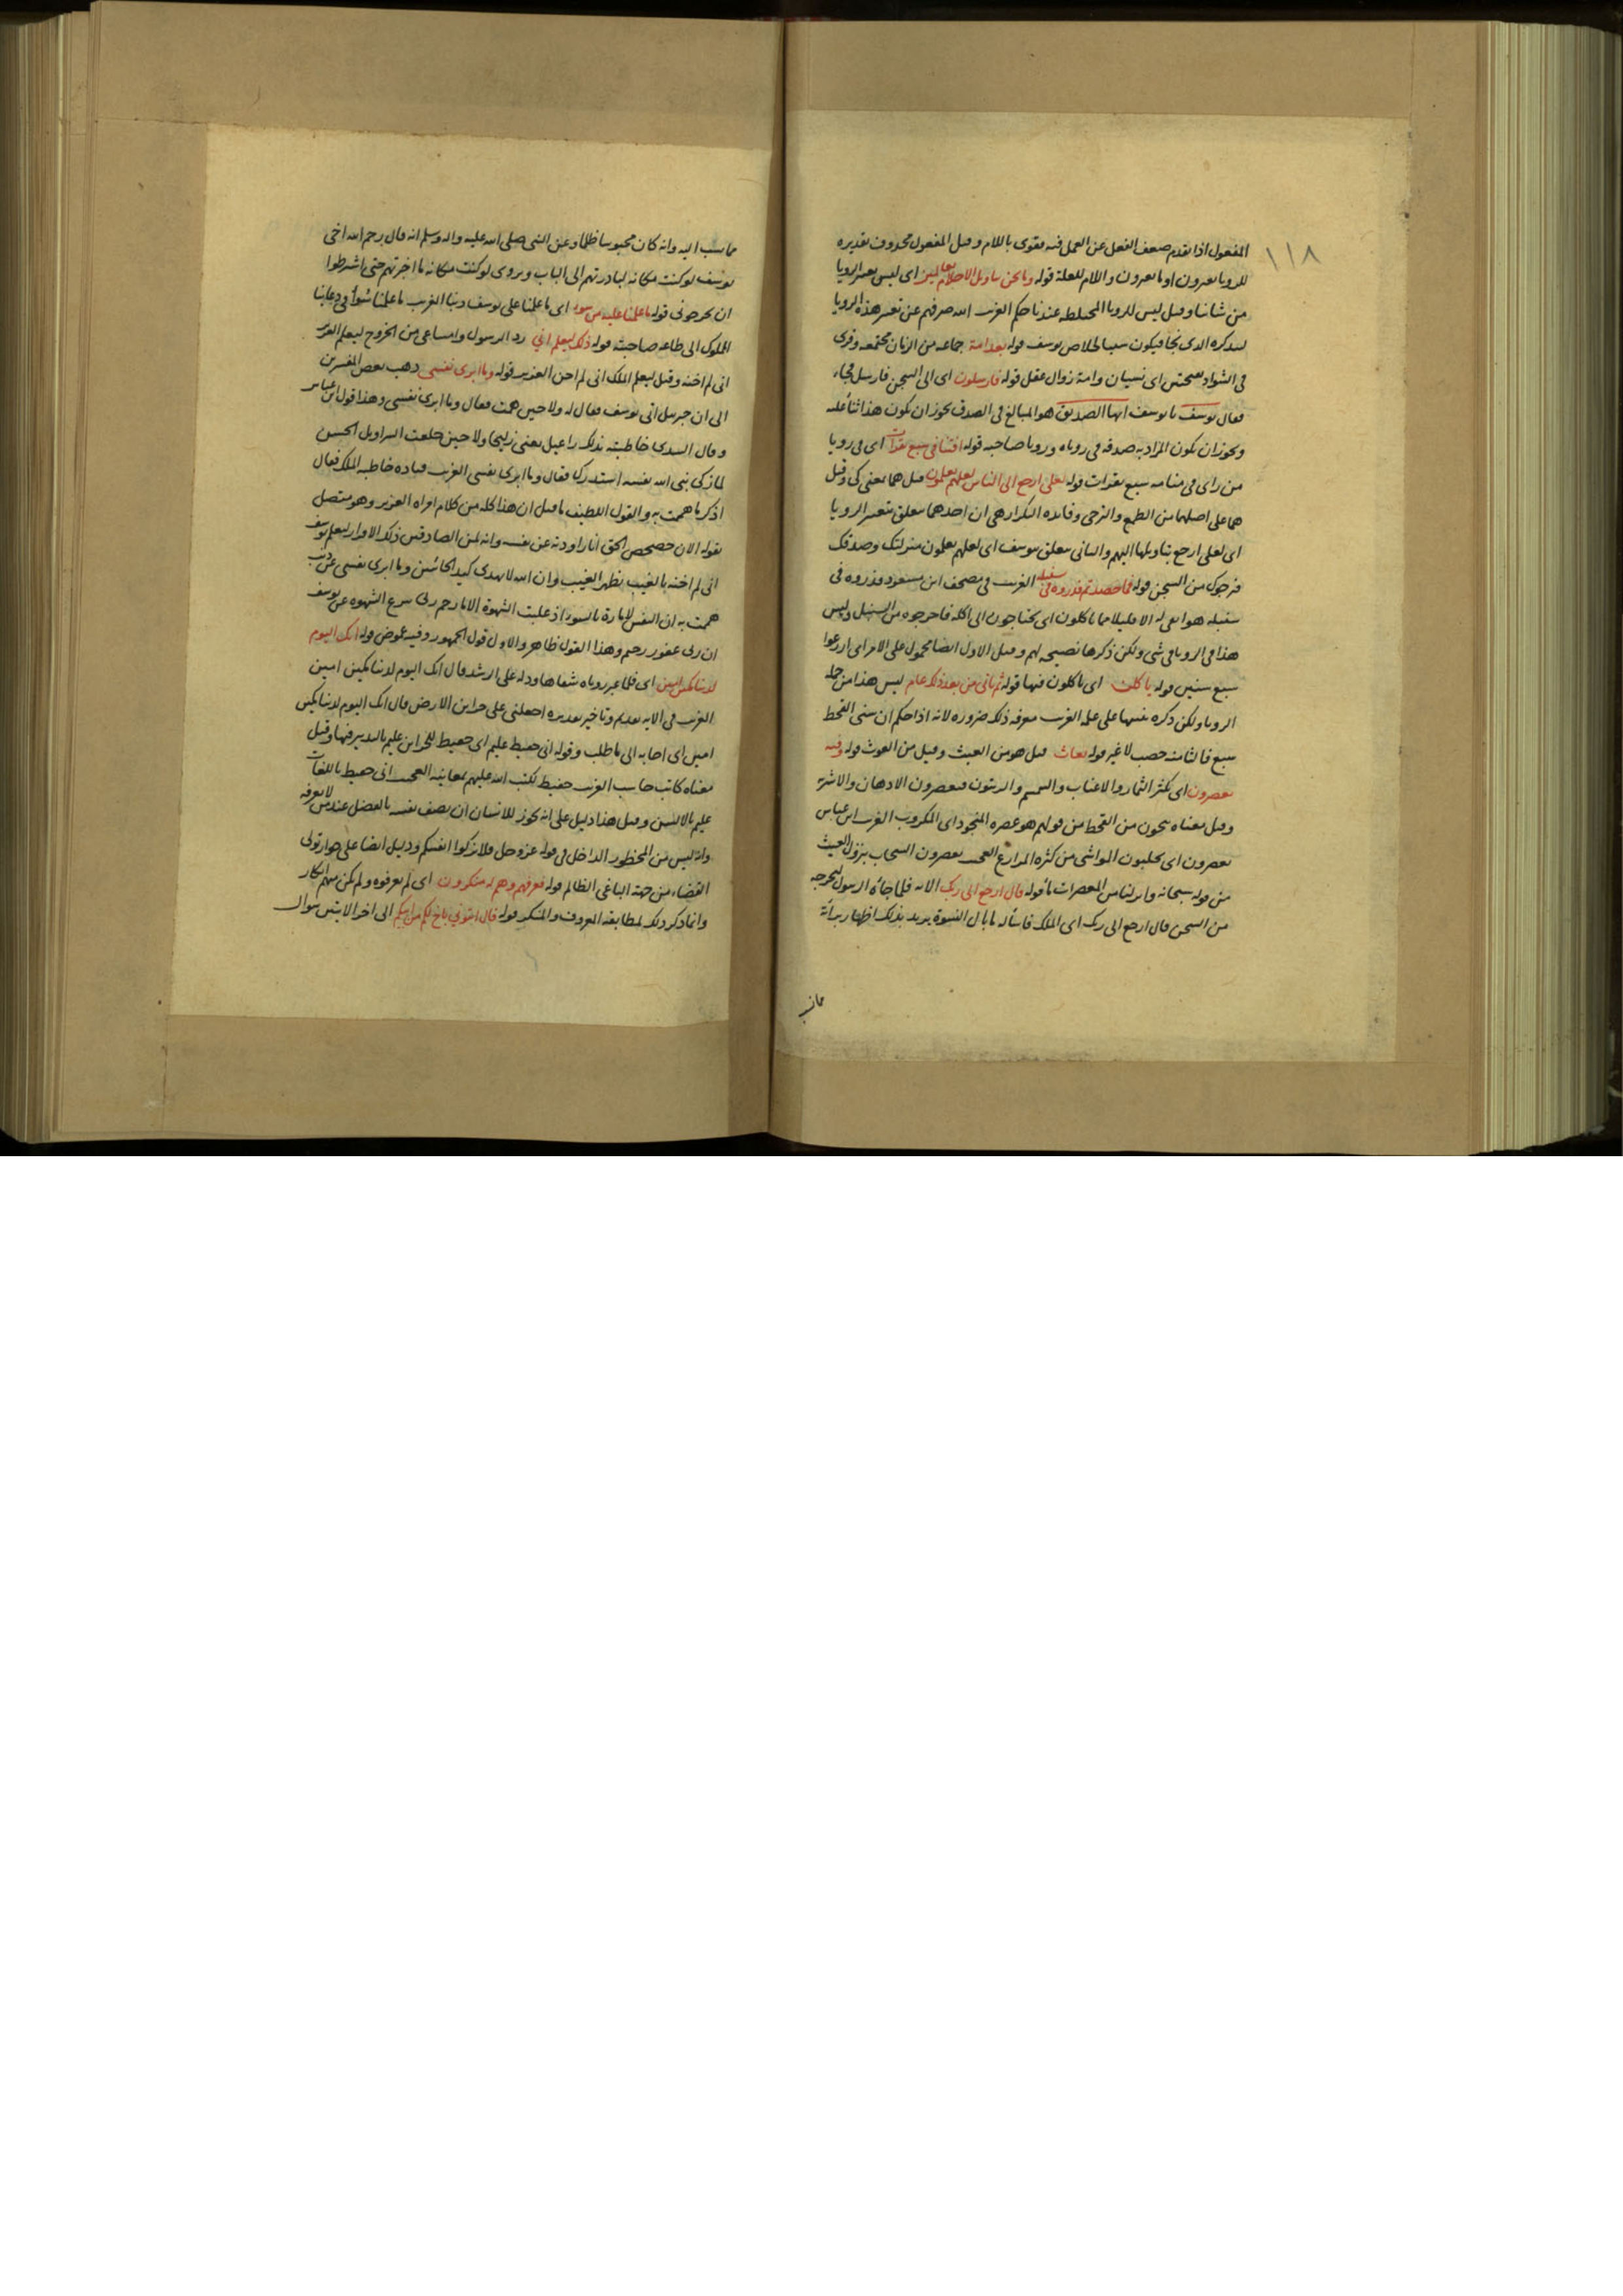 ١١٨
المفعول اذا تقدم ضعف الفعل عن العمل فيه فقوى باللام وقيل المفعول محذوف تقديره
للرويا تعبرون او ما تعبرون واللام للعلة قوله وما نحن بتاويل الاحلام بعالمين اى ليس تعبير الرويا
من شاننا وقيل ليس للرويا المختلطة عندنا حكم الغريب الله صرفهم عن تعبير هذه الرويا
ليذكره الذى نجا فيكون سببا لخلاص يوسف قوله بعد امة جماعة من الزمان مجتمعة وقرى
فى الشواذ بفتحتين اى نسيان وامة زوال عقل قوله فارسلون اى الى السجن فارسل فجاء
فقال يوسف يا يوسف ايها الصديق هو المبالغ فى الصدق يجوز ان يكون هذا ثناً عليه
ويجوز ان يكون المراد به صدقه فى روياه ورويا صاحبه قوله افتنا فى سبع بقرات اى فى رويا
من راى فى منامه سبع بقرات قوله لعلى ارجع الى الناس لعلهم يعلمون قيل هما بمعنى كى وقيل
هما على اصلهما من الطمع والترجى وفايدة التكرار هى ان احدهما متعلق بتعبير الرويا
اى لعلى ارجع بتاويلها اليهم والثانى متعلق بيوسف اى لعلهم يعلمون منزلتك وصدقك
فيخرجوك من السجن قوله فما حصدتم فذروه فى سنبله الغريب فى مصحف ابن مسعود فذروه فى
سنبله هو ابقى له الا قليلا مما تاكلون اى تحتاجون الى اكله فاخرجوه من السنبل وليس
هذا فى الرويا فى شى ولكن ذكرها نصيحة لهم وقيل الاول ايضا محمول على الامر اى ازرعوا
سبع سنين قوله ياكلن اى ياكلون فيها قوله ثم ياتى من بعد ذلك عام ليس هذا من جملة
الرويا ولكن ذكره تنبيها على علمه الغريب معرفة ذلك ضرورة لانه اذا حكم ان سنى القحط
سبع فالثامنة خصب لا غير قوله يغاث قيل هو من الغيث وقيل من الغوث قوله وفيه
يعصرون اى يكثر الثمار والاعناب والسمسم والزيتون فيعصرون الادهان والاشربة
وقيل معناه ينجون من القحط من قولهم هو عصرة المنجود اى المكروب الغريب ابن عباس
يعصرون اى يحلبون المواشى من كثرة المزارع العجيب يعصرون السحاب بنزول الغيث
من قوله سبحانه وانزلنا من المعصرات ماً قوله قال ارجع الى ربك الاية فلما جاءه الرسول ليخرجه
من السجن قال ارجع الى ربك اى الملك فاسأله ما بال النسوة يريد بذلك اظهار براءته
مما نسب
مما نسب اليه وانه كان محبوسا ظلما وعن النبى صلى الله عليه واله وسلم انه قال رحم الله اخى
يوسف لو كنت مكانه لبادرتهم الى الباب ويروى لو كنت مكانه ما اخبرتهم حتى اشترطوا
ان يخرجونى قوله ما علمنا عليه من سوء اى ما علمنا على يوسف ذنبا الغريب ما علمنا سوءا فى دعائنا
المملوك الى طاعة صاحبته قوله ذلك ليعلم انى رد الرسول وامتناعى من الخروج ليعلم العزيز
انى لم اخنه وقيل ليعلم الملك انى لم اخن العزيز قوله وما ابرى نفسى ذهب بعض المفسرين
الى ان جبريل اتى يوسف فقال له ولا حين هممت فقال وما ابرى نفسى وهذا قول ابن عباس
وقال السدى خاطبته بذلك راعيل يعنى زليخا ولا حين خلعت السراويل الحسن
لما زكى نبى الله نفسه استدرك فقال وما ابرى نفسى الغريب قتادة خاطبه الملك فقال
اذكر ما هممت به والقول اللطيف ما قيل ان هذا كله من كلام امراة العزيز وهو متصل
بقوله الان حصحص الحق انا راودته عن نفسه وانه لمن الصادقين ذلك الاقرار ليعلم يوسف
انى لم اخنه بالغيب بظهر الغيب وان الله لا يهدى كيد الخائنين وما ابرى نفسى عن ذنب
هممت به ان النفس لامارة بالسوء اذ غلبت الشهوة الا ما رحم ربى نزع الشهوة عن يوسف
ان ربى غفور رحيم وهذا القول ظاهر والاول قول الجمهور وفيه غموض قوله انك اليوم
لدينا مكين امين اى فلما عبر روياه شفاها ودله على الرشد قال انك اليوم لدينا مكين امين
الغريب فى الاية تقديم وتاخير تقديره اجعلنى على خزاين الارض قال انك اليوم لدينا مكين
امين اى اجابه الى ما طلب وقوله انى حفيظ عليم اى حفيظ للخزاين عليم بالتدبير فيها وقيل
معناه كاتب حاسب الغريب حفيظ لكتب الله عليهم بمعانيه العجيب انى حفيظ باللغات
عليم بالالسن وقيل هذا دليل على انه يجوز للانسان ان يصف نفسه بالفضل عند من لا يعرفه
وانه ليس من المحظور الداخل فى قوله عز وجل فلا تزكوا انفسكم ودليل ايضا على جواز تولى
القضاء من جهة الباغى الظالم قوله فعرفهم وهم له منكرون اى لم يعرفوه ولم يكن منهم انكار
وانما ذكر ذلك لمطابقة المعروف والمنكر قوله قال ائتونى باخ لكم من ابيكم الى اخر الايتين سوال